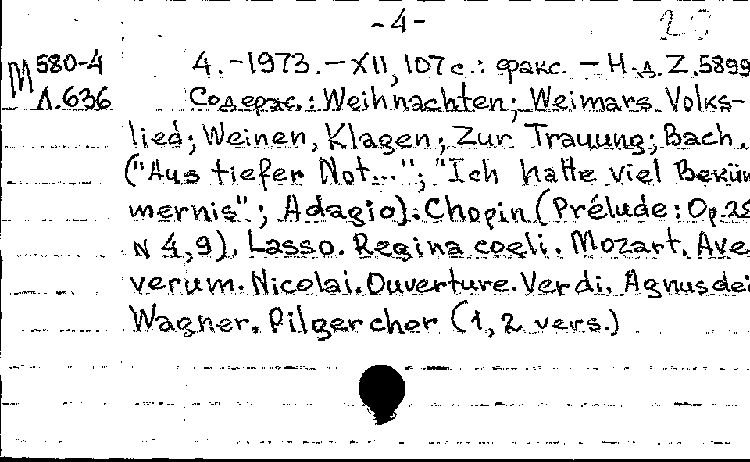 -4-
20
М 580-4 4.-1973.-XII, 107 с.: факс. - Н.д. Z.5899
Л.636 Содерж.: Weihnachten; Weimars Volks-
lied; Weinen, Klagen; Zur Trauung; Bach.
("Aus tiefer Not..."; "Ich hatte viel Beküm
mernis"; Adagio). Chopin (Prélude: Op. 28
N 4,9). Lasso. Regina coeli. Mozart. Ave
verum. Nicolai. Ouverture. Verdi. Agnus dei
Wagner. Pilgercher (1, 2 vers.)